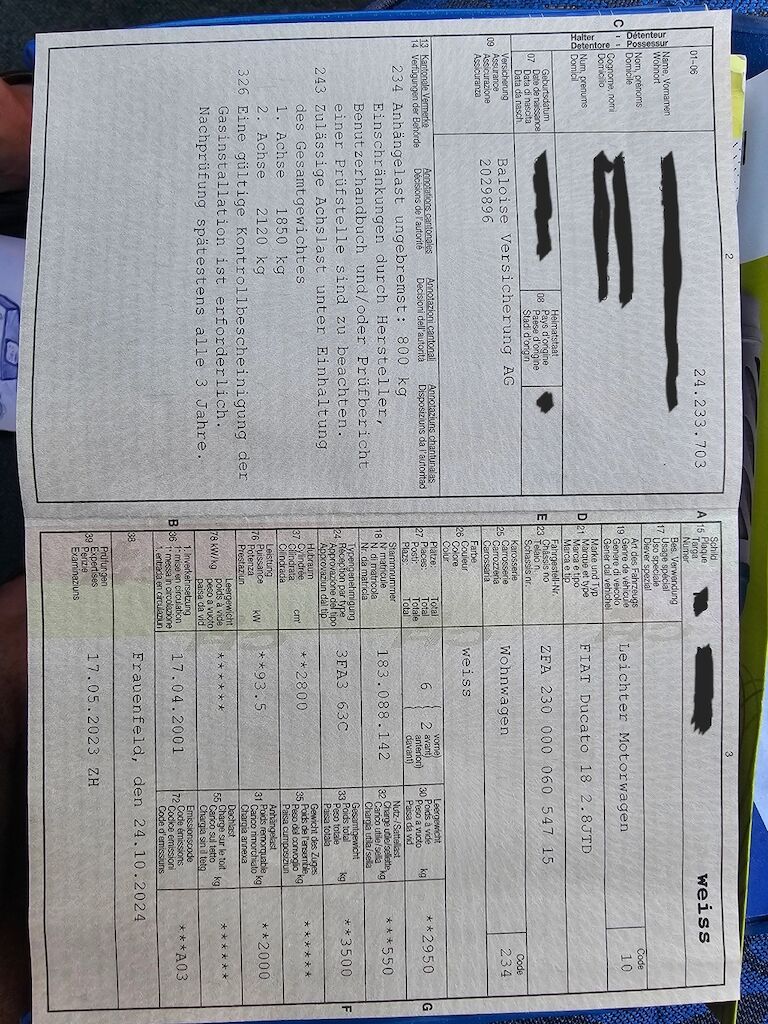 24.233.703
C
Halter - Détenteur
Detentore - Possessur
01-06
Name, Vornamen
Wohnort
Nom, prénoms
Domicile
Cognome, nomi
Domicilio
Num, prenums
Domicil
Geburtsdatum
07 Date de naissance
Data di nascita
Data da nasch.
Heimatstaat
08 Pays d'origine
Paese d'origine
Stadi d'origin
Versicherung
09 Assurance
Assicurazione
Assicuranza
Baloise Versicherung AG
2029896
13 Kantonale Vermerke Annotations cantonales Annotazioni cantonali Annotaziuns chantunalas
14 Verfügungen der Behörde Décisions de l'autorité Decisioni dell'autorità Disposiziuns da l'autoritad
234 Anhängelast ungebremst: 800 kg
Einschränkungen durch Hersteller,
Benutzerhandbuch und/oder Prüfbericht
einer Prüfstelle sind zu beachten.
243 Zulässige Achslast unter Einhaltung
des Gesamtgewichtes
1. Achse 1850 kg
2. Achse 2120 kg
326 Eine gültige Kontrollbescheinigung der
Gasinstallation ist erforderlich.
Nachprüfung spätestens alle 3 Jahre.
2
3
A
15 Schild
Plaque
Targa
Numer
weiss
17 Bes. Verwendung
Usage spécial
Uso speciale
Diever spezial
19 Art des Fahrzeugs
Genre de véhicule
Genere di veicolo
Gener da vehichel
Leichter Motorwagen
Code
10
D
21 Marke und Typ
Marque et type
Marca e tipo
Marca e tip
FIAT Ducato 18 2.8JTD
E
23 Fahrgestell-Nr.
Châssis no
Telaio n.
Schassis nr.
ZFA 230 000 060 547 15
25 Karosserie
Carrosserie
Carrozzeria
Carossaria
Wohnwagen
Code
234
26 Farbe
Couleur
Colore
Colur
weiss
27 Plätze: Total
Places: Total
Posti: Totale
Plazs: Total
6
{ 2
vorne)
avant)
anteriori)
davant)
30 Leergewicht
Poids à vide kg
Peso a vuoto
Paisa da vid
**2950
G
18 Stammnummer
N° matricule
N. di matricola
Nr. da matricla
183.088.142
32 Nutz-/Sattellast
Charge utile/sellette kg
Carico utile/sella
Chargia utila/sella
***550
24 Typengenehmigung
Réception par type
Approvazione del tipo
Approvaziun dal tip
3FA3 63C
33 Gesamtgewicht
Poids total kg
Peso totale
Paisa totala
**3500
F
37 Hubraum
Cylindrée cm³
Cilindrata
Cilindrada
**2800
35 Gewicht des Zuges
Poids de l'ensemble kg
Peso del convoglio
Paisa cumposiziun
******
76 Leistung
Puissance kW
Potenza
Prestaziun
**93.5
31 Anhängelast
Poids remorquable kg
Carico rimorchiato
Chargia annexa
**2000
78 kW/kg
Leergewicht
poids à vuide
peso a vuoto
paisa da vid
******
55 Dachlast
Charge sur le toit kg
Carico sul tetto
Chargia sin il tetg
******
B
36 1. Inverkehrsetzung
1re mise en circulation
1. messa in circolazione
1. entrada en circulaziun
17.04.2001
72 Emissionscode
Code émissions
Codice emissioni
Code d'emissiuns
***A03
38
Frauenfeld, den 24.10.2024
39 Prüfungen
Expertises
Perizie
Examinaziuns
17.05.2023 ZH